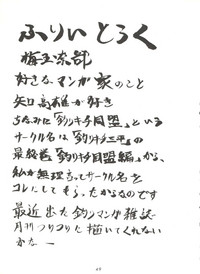 ふりぃとろく
梅玉奈部
好きなマンガ家のこと
矢口高雄が好き
ちなみに「釣りキチ同盟」という
サークル名は「釣りキチ三平」の
最終巻「釣りキチ同盟編」から、
私が無理言ってサークル名を
コレにしてもらったからなのです
最近出た釣りマンガ雑誌
月刊つりつりに描いてくれない
かな―